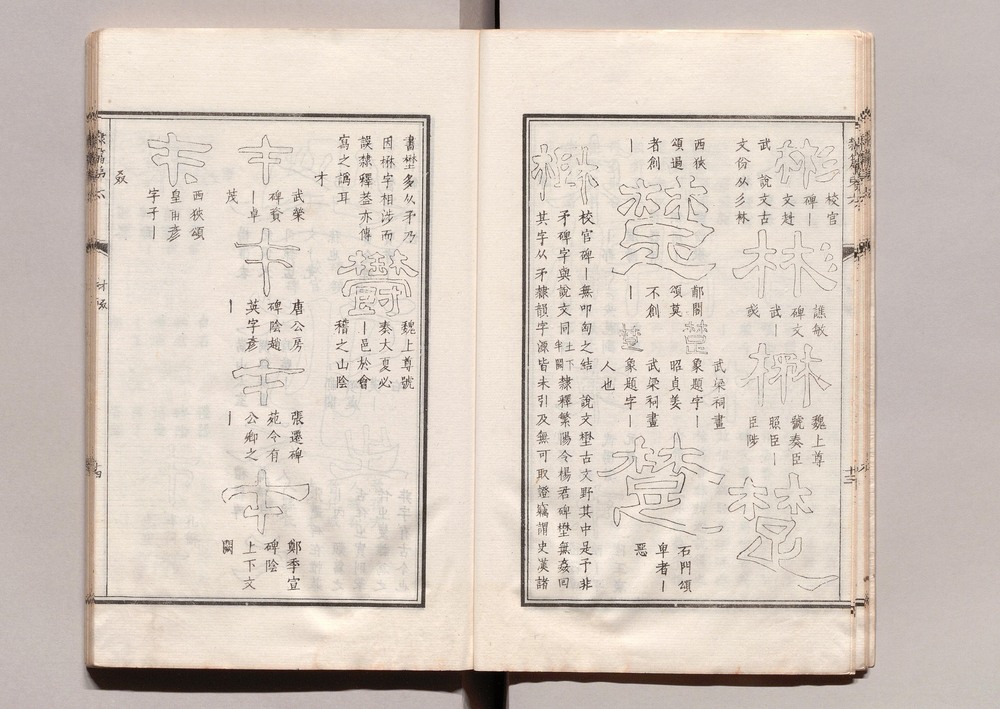 彬
校官
碑丨
文赳
武
說文古
文份从彡林
林
譙敏
碑文
武丨
彧
楙
魏上尊
號奏臣
照臣丨
臣陟
楚
西狹
頌過
者創
丨
楚
郙閣
頌莫
不創
丨
楚
武梁祠畫
象題字丨
昭貞姜
楚
武梁祠畫
象題字丨
人也
楚
石門頌
卑者丨
惡
校官碑丨無叩匈之結
說文壄古文野其中是予非
矛碑字與說文同土下
隸釋繁陽令楊君碑壄無姦回
其字从矛隸韻字源皆未引及無可取證竊謂史漢諸
書壄多从矛乃
因楙字相涉而
誤隸釋蓋亦傳
寫之譌耳
鬱
魏上尊號
奏大夏必
丨邑於會
稽之山陰
才
武榮
碑資
丨卓
茂
唐公房
碑陰趙
英字彥
丨
張遷碑
苑令有
公卿之
丨
鄭季宣
碑陰
上下文
闕
西狹頌
皇甫彥
字子丨
叒